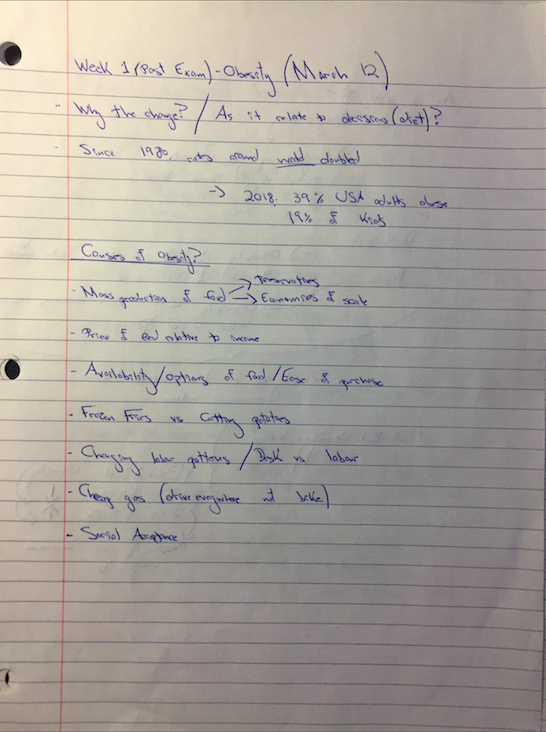 Week 1 (Post Exam) - Obesity (March 12)
- Why the change? / As it relate to decisions (diet)?
- Since 1980, rates around world doubled
-> 2018, 39% USA adults obese
19% of Kids
Causes of Obesity?
-> Preservatives
- Mass production of food -> Economies of scale
- Price of food relative to income
- Availability/options of food / Ease of purchase
- Frozen Fries vs Cutting potatoes
- Changing labor patterns / Desk vs labour
- Cheap gas (drive everywhere not bike)
- Social Acceptance